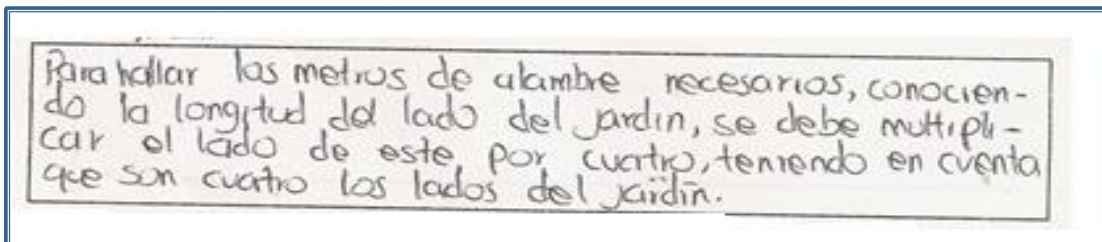 Para hallar los metros de alambre necesarios, conocien-
do la longitud del lado del jardin, se debe multipli-
car el lado de este por cuatro, teniendo en cuenta
que son cuatro los lados del jardin.